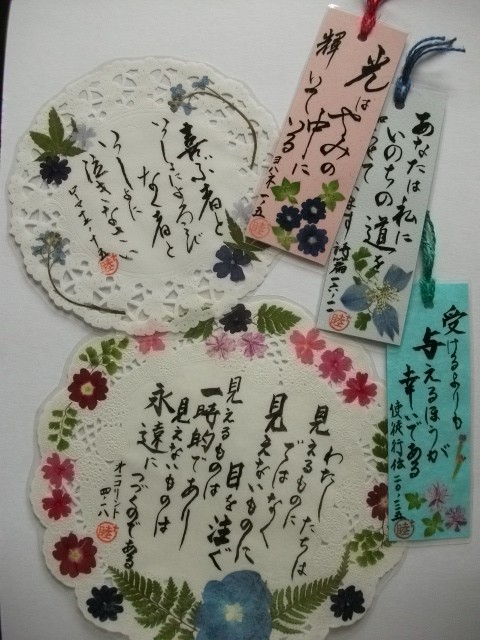 喜ぶ者と
いっしょによろこび
なく者と
いっしょに
泣きなさい
光は
やみの
中に
輝いている
ヨハネ一・五
あなたは私に
いのちの道を
詩篇一六・一一
受けるよりも
与えるほうが
幸いである
使徒行伝二〇・三五
わたしたちは
見えるものに
ではなく
見えないものに
目を注ぐ
見えるものは
一時的であり
見えないものは
永遠に
つづくのである
オニコリント
四・一八